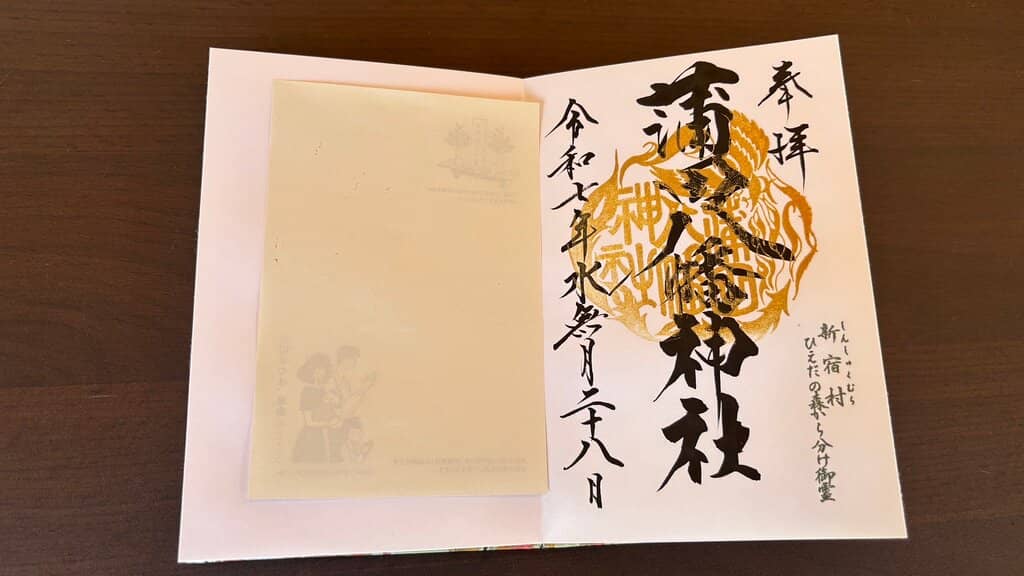 奉拝
しんしゅくむら
新宿村
ひえだの森から分け御霊
蒲田八幡神社
神社
令和七年水無月二十八日